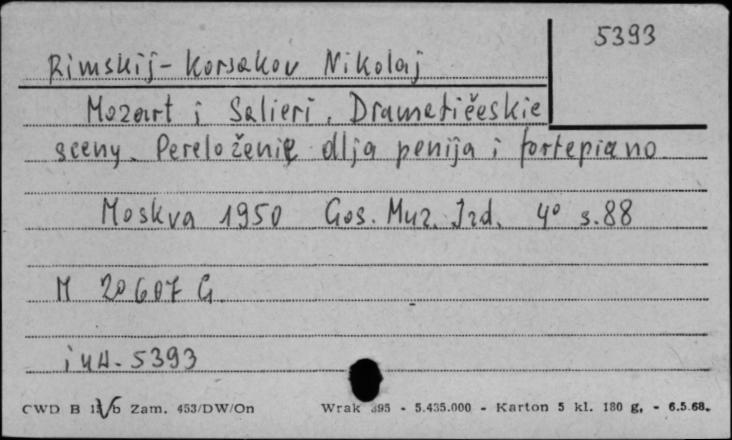 5393
Rimskij-Korsakov Nikolaj
Mozart i Salieri. Dramatičeskie
sceny. Pereloženie dlja penija i fortepiano
Moskva 1950 Gos. Muz. Izd. 4° s.88
M 20607 G.
inw. 5393
CWD B Zam. 453/DW/On Wrak 395 - 5.435.000 - Karton 5 kl. 180 g. - 6.5.68.